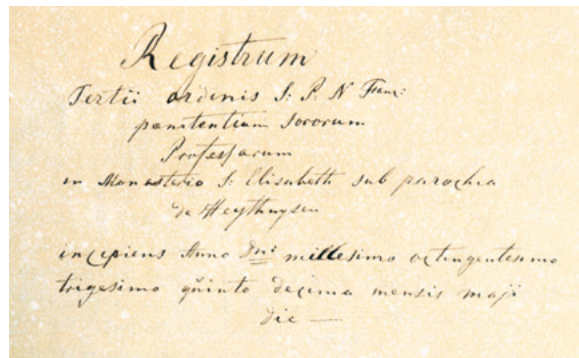 Registrum
Tertii ordinis S: P. N Franc:
pœnitentium Sororum
Professarum
in Monasterio S: Elisabeth sub parochia
de Heythuysen
incipiens Anno Dni millesimo octingentesimo
trigesimo quinto decima mensis maji
die —